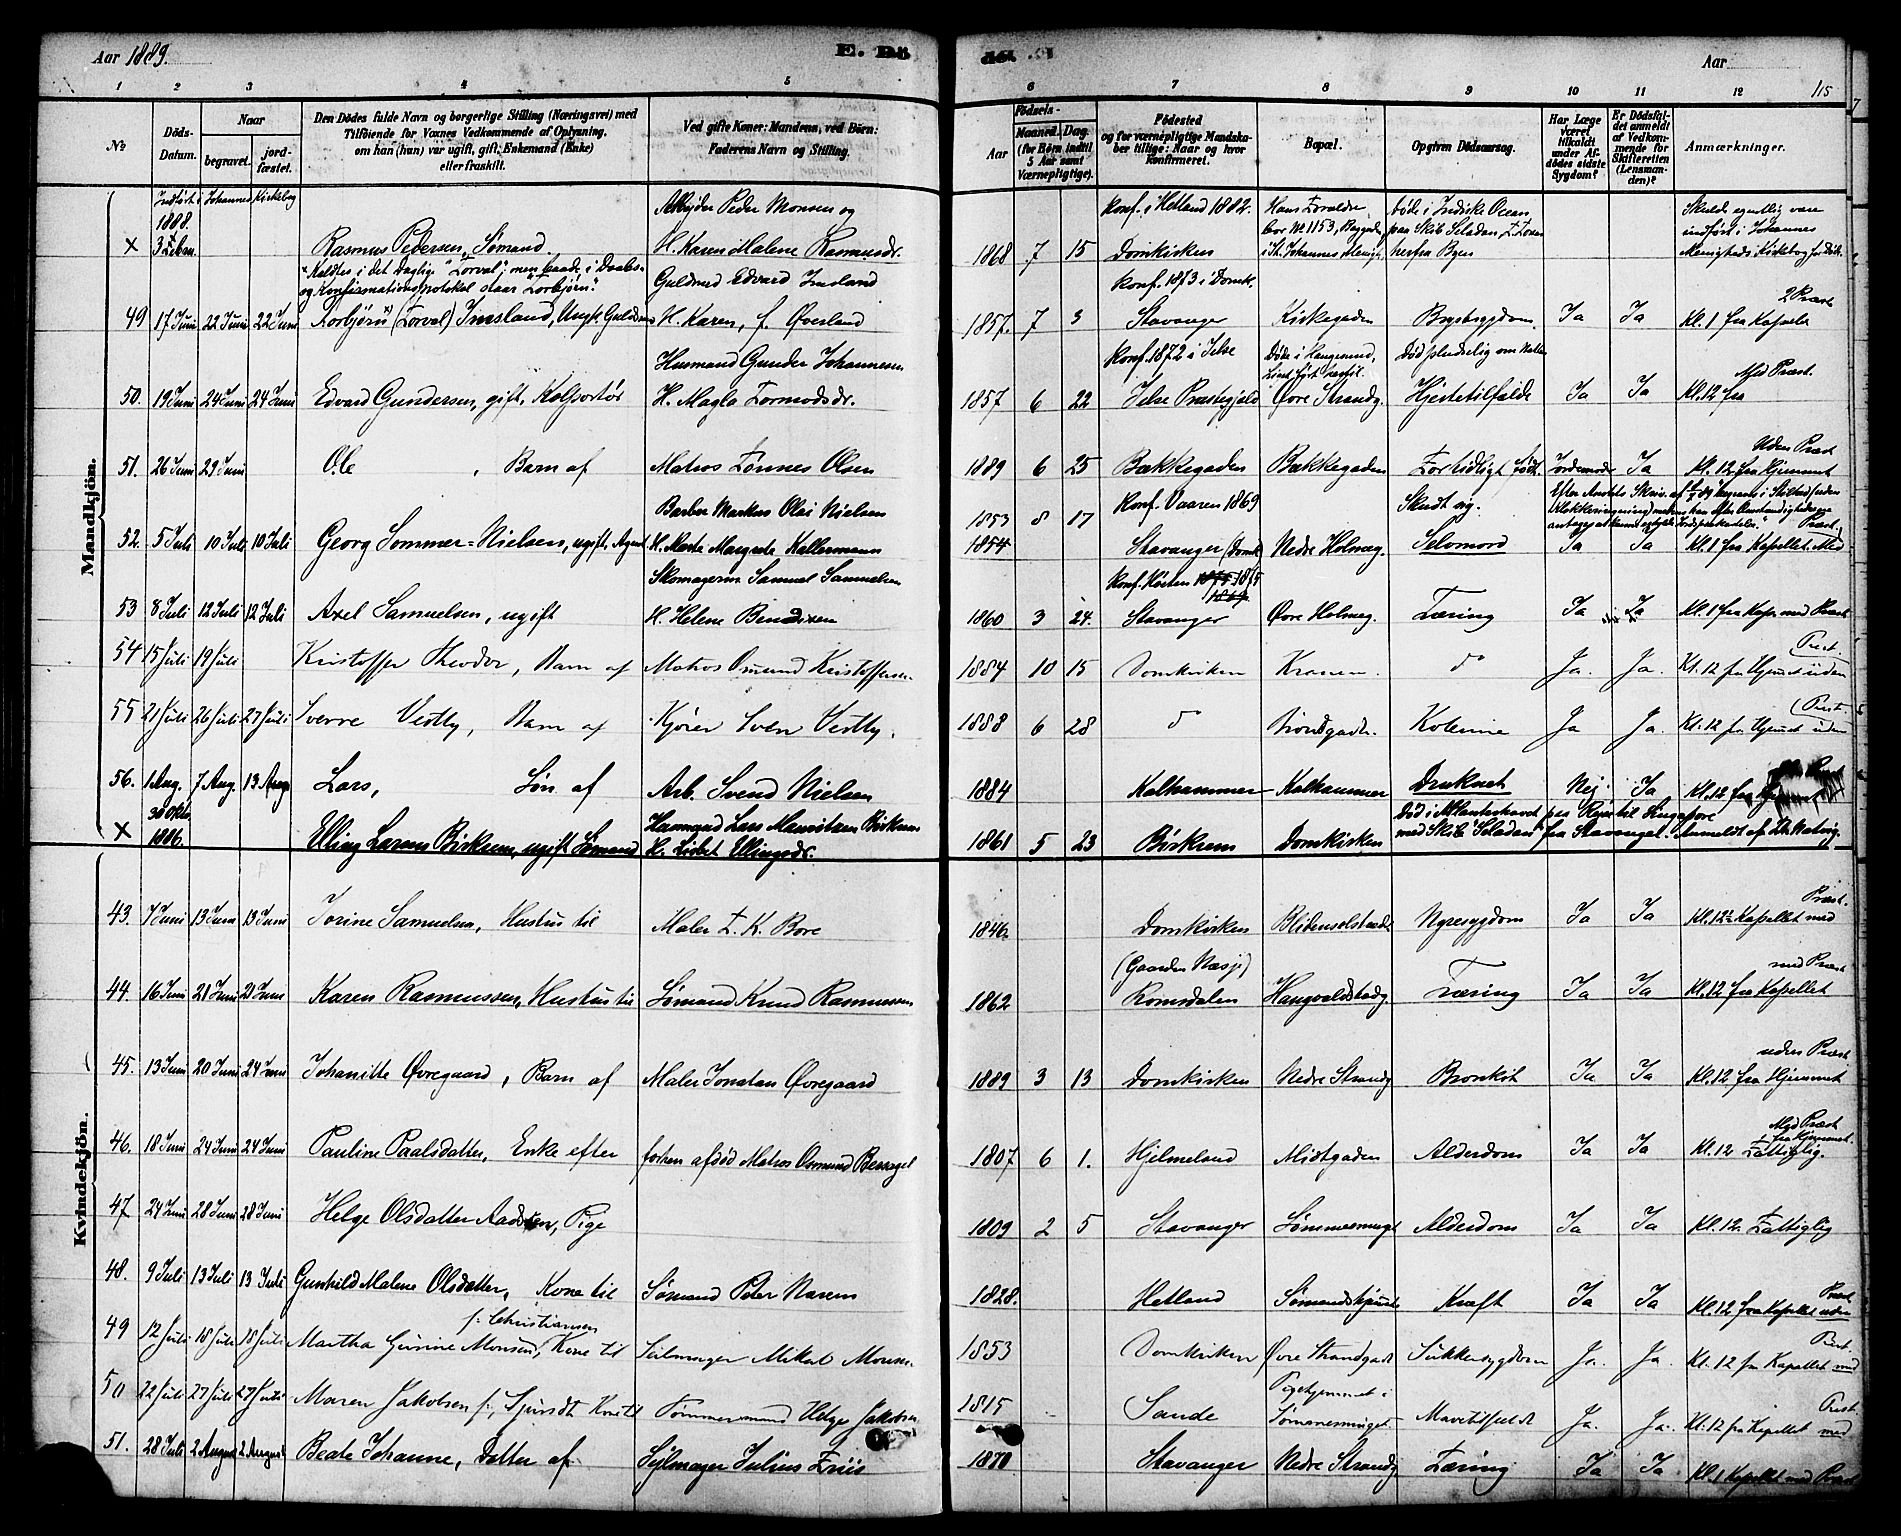 Aar 1889.
E. Dö
de.
Aar
115
1 2 3 4 5 6 7 8 9 10 11 12
№
Döds-Datum.
Naar
begravet.
jord-fæstet.
Den Dödes fulde Navn og borgerlige Stilling (Næringsvei) med
Tilföiende for Voxnes Vedkommende af Oplysning,
om han (hun) var ugift, gift, Enkemand (Enke)
eller fraskilt.
Ved gifte Koner: Mandens, ved Börn:
Faderens Navn og Stilling.
Födsels-
Aar
Maaned. Dag.
(for Börn indtil
5 Aar samt
Værnepligtige).
Födested
og for værnepligtige Mandska-
ber tillige: Naar og hvor
konfirmeret.
Bopæl.
Opgiven Dödsaarsag.
Har Læge
været
tilkaldt
under Af-
dödes sidste
Sygdom?
Er Dödsfal-
det anmeldt
af Vedkom-
mende for
Skifteretten
(Lensman-
den)?
Anmærkninger.
Mandkjön.
Indført i Johannes Kirkebog
Arbeider Peder Monsen og konf. i Hetland 1882. Hans Forældre døde i Indiske Ocean Skulde egentlig være
1888. bor № 1153, paa Skib Seladon indført i Johannes
× Rasmus Pedersen, Sømand H. Karen Malene Rasmusdr. 1868 7 15 Domkirken i St. Johannes Menigh. herfra Byen Menigheds Kirkebog
× Kaldtes i det Daglige "Torval"; men baade i Daabs-
og Konfirmationsprotokol staar Torbjørn". Guldsmed Edvard Imsland konf. 1873 i Domk. 2 Præst
49 17 Juni 22 Juni 22 Juni Torbjørn × (Torval) Imsland, Ungk. Guldsm. H. Karen, f. Øverland 1857. 7 3 Stavanger Kirkegaden Brystsygdom. Ja Ja Kl. 1 fra Kapelet
Husmand Gunder Johannesen konf. 1872 i Jelse Døde i Haugesund, Død pludselig om Natten
Liget ført hertil. Med Præst.
50. 19 Juni 24 Juni 24 Juni Edvard Gundersen, gift, Kolportør H. Magla Tormodsdr. 1857 6 22 Jelse Præstegjeld Øvre Strandg. Hjertetilfælde Ja Ja Kl. 12 fra
Uden Præst
51. 26 Juni 29 Juni Ole, Barn af Matros Tønnes Olsen 1889 6 25 Bækkegaden Bækkegaden Fortidligt født. Jordemoder Ja Kl. 12 fra Hjemmet
Barber Markus Olai Nielsen 1853 8 17 Konf. Vaaren 1869 Skudt sig.
52. 5 Juli 10 Juli 10 Juli Georg Sommer-Nielsen, ugift, Agent H. Marte Margrete Kallermann 1854 Stavanger (Domk) Nedre Holmeg. Selvmord Ja Ja Kl. 1 fra Kapellet. Med Præst
Skomagerm. Samuel Samuelsen Konf. Høsten 1875 1875
1869
53 8 Juli 12 Juli 12 Juli Axel Samuelsen, ugift H. Helene Bendixen 1860 3 24. Stavanger Øvre Holmeg. Tæring Ja Ja Kl. 1 fra Kap. med Præst
Præst.
54 15 Juli 19 Juli Kristoffer Theodor, Barn af Matros Osmund Kristoffersen 1884 10 15 Domkirken Kranen. do Ja. Ja. Kl. 12 fra Hjemmet uden
Præst.
55 21 Juli 26 Juli 27 Juli Sverre Vestby, Barn af Kjører Sven Vestby. 1888 6 28 do Kolerine Ja Ja. Kl. 12 fr. Hjemmet uden
56. 1. Aug. 7 Aug. 13 Aug Lars, Søn af Arb. Svend Nielsen 1884 Kalhammer Kalhammer Druknet Nej. Ja Kl. 12 fra
30 Okt. Husmand Lars Mauritzen Birkrem Død i Atlanterhavet paa Rejse til Singapore
× 1886. Elling Larsen Birkrem, ugift Sømand H. Lisbet Ellingsdr. 1861 5 23 Birkrem Domkirken med Skib "Seladon" fra Stavanger. Anmeldt af
Kvindekjön.
Præst.
43. 7 Juni 13 Juni 13 Juni Torine Samuelsen, Hustru til Maler T. K. Bore 1846. Domkirken Blidensolstræde Nyresygdom Ja Ja Kl. 12½ Kapellet med
(Gaarden Næsje) med Præst
44. 16 Juni 21 Juni 21 Juni Karen Rasmussen, Hustru til Sømand Knud Rasmussen 1862 Romsdalen Haugvaldstadg. Tæring Ja Ja Kl. 12 fra Kapellet
uden Præst
45. 13 Juni 20 Juni 24 Juni Johanitte Øvregaard, Barn af Maler Jonatan Øvregaard 1889 3 13 Domkirken Nedre Strandg Bronkit Ja Ja Kl. 12 fra Hjemmet
Med Præst
fra Hjemmet.
46. 18 Juni 24 Juni 24 Juni Pauline Paalsdatter, Enke efter forhen afdød Matros Osmund Bersagel 1807 6 1. Hjelmeland Mistgaden Alderdom Ja Ja Kl. 12 Fattiglig.
47 24 Juni 28 Juni 28 Juni Helge Olsdatter Aadsen, Pige 1809 2 5 Stavanger Sømmesmuget Alderdom Ja Ja Kl. 12. Fattiglig
Præst
48. 9 Juli 13 Juli 13 Juli Gunhild Malene Olsdatter, Kone til Sømand Peter Narem 1828. Hetland Kræft Ja Ja Kl. 12 fra Kapellet uden
f. Christiansen Præst.
49 12 Juli 18 Juli 18 Juli Martha Gurine Monsen, Kone til Seilmager Mikal Monsen 1853 Domkirken Øvre Strandgade Sukkersygdom Ja. Ja. Kl. 12 fr. Kapellet med
Pigehjemmet i Præst.
50 22 Juli 27 Juli 27 Juli Maren Jakobsen f., Kone til Tømmermand Helge Jakobsen 1815 Sande Mavetilfældt Ja. Ja. Kl. 12 fra Kapellet med
51. 28 Juli 2 August 2 August Beate Johanne, Datter af Sejlmager Julius Friis 1870 Stavanger Nedre Strandg Tæring Ja Ja Kl. 1 Kapellet med Præst